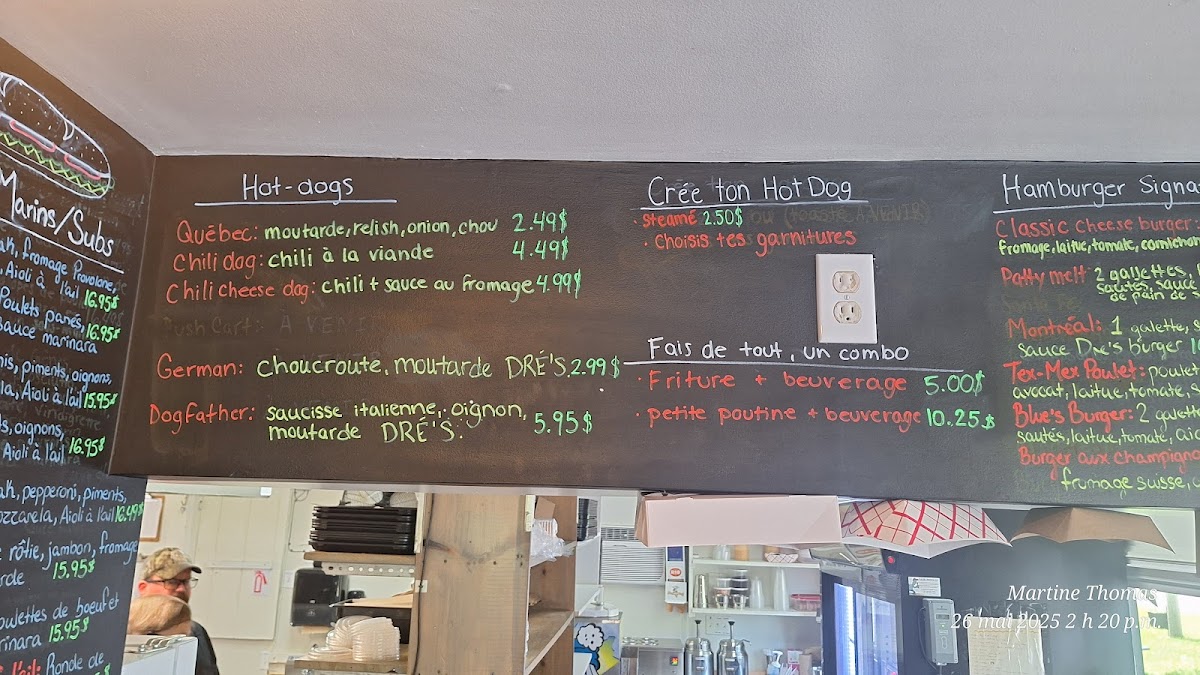 Marins/Subs
fromage Provolone,
Aioli à l'ail 16.95$
Poulets panés, 16.95$
sauce marinara
piments, oignons,
Aioli à l'ail 15.95$
oignons,
Aioli à l'ail 16.95$
pepperoni, piments,
Aioli à l'ail 16.49$
rôtie, jambon, fromage
15.95$
boulettes de boeuf et
15.95$
Ronde de
Hot-dogs
Québec: moutarde, relish, onion, chou 2.49$
Chili dog: chili à la viande 4.49$
Chili cheese dog: chili + sauce au fromage 4.99$
À VENIR
German: choucroute, moutarde DRÉ'S. 2.99$
DogFather: saucisse italienne, oignon, 5.95$
moutarde DRÉ'S.
Crée ton HotDog
· steamé 2.50$ ou (toasté À VENIR)
· Choisis tes garnitures
Fais de tout, un combo
· Friture + beuverage 5.00$
· petite poutine + beuverage 10.25$
Hamburger Signa
Classic Cheese burger
fromage, laitue, tomate, cornichon
Patty melt: 2 galettes,
sautés, sauce
de pain de
Montréal: 1 galette,
sauce Dre's burger
Tex-Mex Poulet: poulet
avocat, laitue, tomate,
Blue's Burger: 2
sautés, laitue, tomate,
Burger aux champigno
fromage suisse,
Martine Thomas
26 mai 2025 2 h 20 p.m.